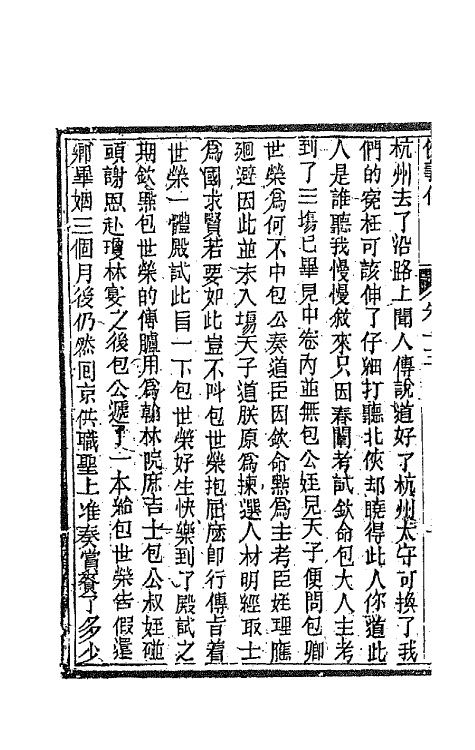 杭州去了沿路上聞人傳說道好了杭州太守可換了我
們的寃枉可該伸了仔細打聽北俠却曉得此人你道此
人是誰聽我慢慢敘來只因春闈考試欽命包大人主考
到了三塲已畢見中卷內並無包公姪兒天子便問包卿
世榮爲何不中包公奏道臣因欽命㸃爲主考臣姪理應
廻避因此並未入塲天子道朕原爲揀選人材明經取士
爲國求賢若要如此豈不叫包世榮抱屈麽卽行傳旨着
世榮一體殿試此旨一下包世榮好生快樂到了殿試之
期欽㸃包世榮的傳臚用爲翰林院庶吉士包公叔姪碰
頭謝恩赴瓊林宴之後包公遞了一本給包世榮告假還
鄉畢姻三個月後仍然囘京供職聖上准奏賞賚了多少